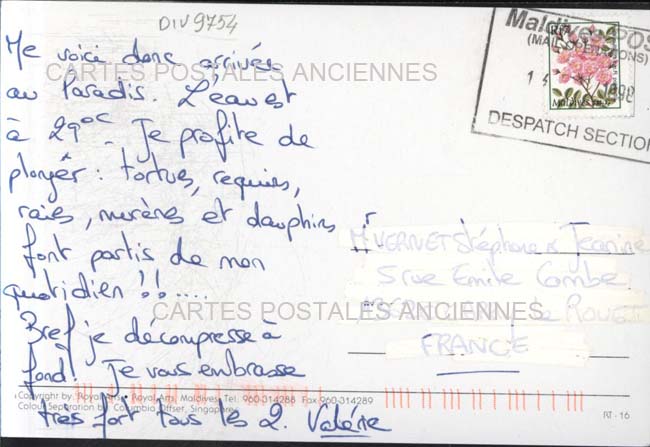 DIV9754
Me voici donc arrivée
au Paradis. L'eau est
à 29°C _ Je profite de
plonger : tortues, requins,
raies, murènes et dauphins
font partis de mon
quotidien !!....
Bref je décompresse à
fond! Je vous embrasse
très fort tous les 2. Valérie
Maldives POS
(MAIL OPERATIONS)
14
1998
DESPATCH SECTION
MALDIVES
CARTES POSTALES ANCIENNES
Mr VERNET Stéphane & Jeanine
5 rue Emile Combe
FRANCE
CARTES POSTALES ANCIENNES
Copyright by: Royal Arts, Royal Arts, Maldives. Tel: 960-314288 Fax 960-314289
Colour Separation by: Columbia Offset, Singapore
RT - 16